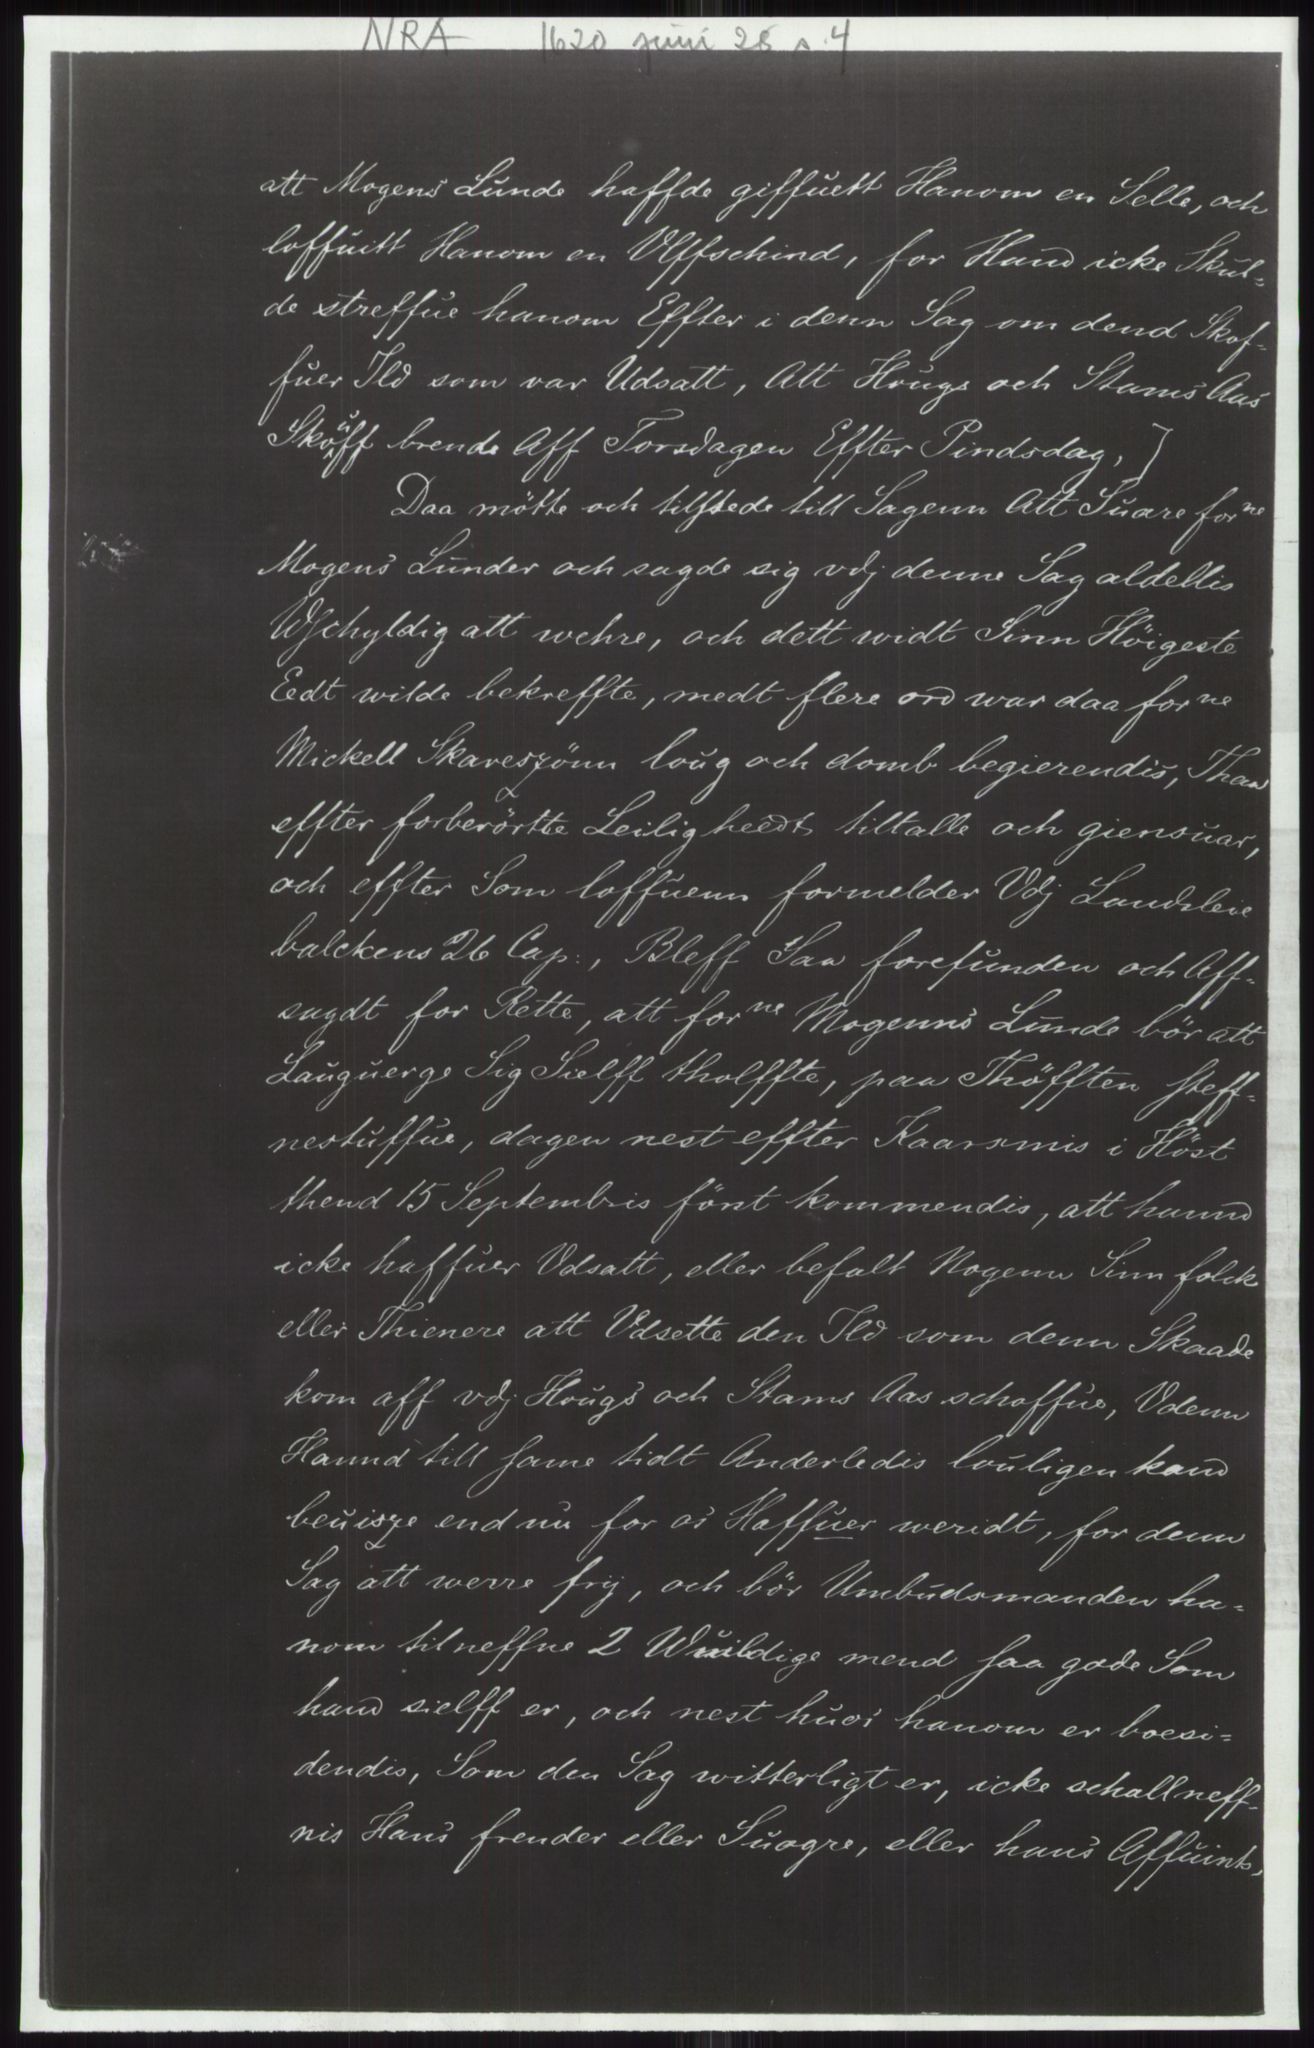 NRA 1620 juni 28 s. 4
att Mogens Lunde haffde giffuett Hanom en Selle, och
loffuitt Hanom en Vlffschind, for Hand icke Skul-
de streffue hanom Effter i denn Sag om dend Skof-
fuer Ild som var Udsatt, Att Hougs och Stams Aas
Skouff brende Aff Torsdagen Effter Pindsdag,]
Daa mötte och tilstede till Sagenn Att Suare forne
Mogens Lunder och sagde sig vdj denne Sag aldellis
Wschyldig att wehre, och dett widt Sinn Höigeste
Eedt wilde bekreffte, medt flere ord war daa forne
Mickell Skareszönn loug och domb begierendis, Thaa
effter forberörtte Leiligheedt tiltalle och giensuar,
och effter Som loffuenn formelder Vdj Landzleie
balckens 26 Cap:, Bleff Saa forefunden och Aff-
sagdt for Rette, att forne Mogenns Lunde bör att
Lauguerge Sig Sielff tholffte, paa Thöfften steff-
nestuffue, dagen nest effter Kaarsmis i Höst
thend 15 Septembris först kommendis, att hannd
icke haffuer Vdsatt, eller befalt Nogenn Sinn folck
eller Thienere att Vdsette den Ild som denn Skaade
kom aff vdj Hougs och Stams Aas schoffue, Vdenn
Hannd till same tidt Anderledis louligen kand
beuisze end nu for os Haffuer weridt, for denn
Sag att werre frij, och bör Umbudsmanden ha-
nom tilneffne 2 Wuildige mend saa gode Som
hand sielff er, och nest huos hanom er boesi-
dendis, Som den Sag witterligt er, icke schall neff-
nis Hans frender eller Suogre, eller hans Affuinds,